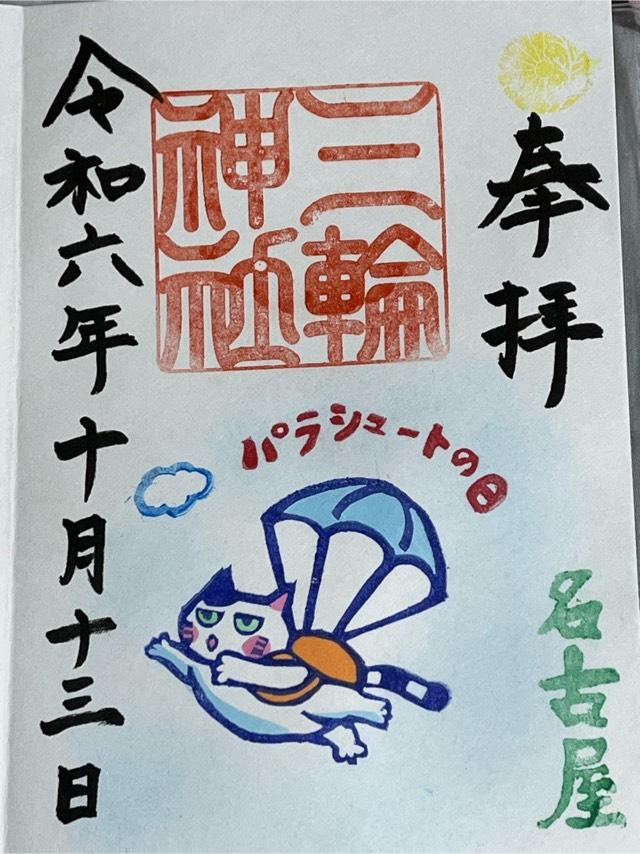 奉拝
三輪
神社
パラシュートの日
名古屋
令和六年十月十三日